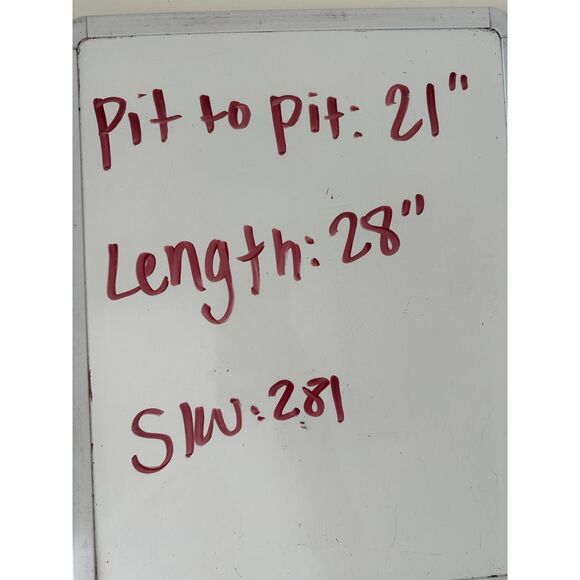 Pit to Pit: 21"
Length: 28"
SKU: 281